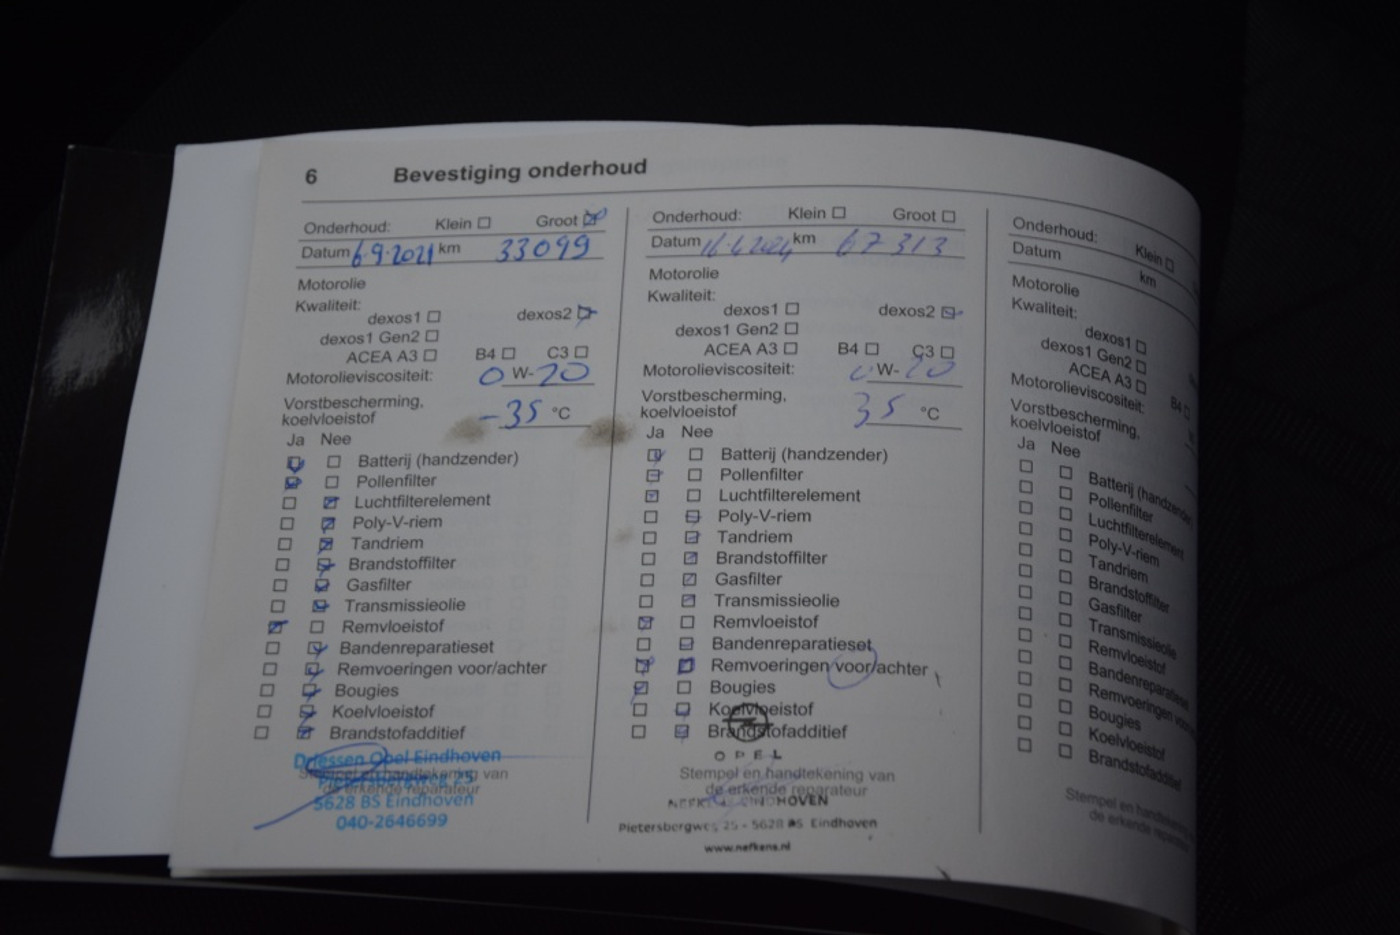 6 Bevestiging onderhoud
Onderhoud: Klein Groot
Datum 6-9-2021 km 33099
Motorolie
Kwaliteit:
dexos1 dexos2
dexos1 Gen2
ACEA A3 B4 C3
Motorolieviscositeit: 0 W-20
Vorstbescherming,
koelvloeistof -35 °C
Ja Nee
Batterij (handzender)
Pollenfilter
Luchtfilterelement
Poly-V-riem
Tandriem
Brandstoffilter
Gasfilter
Transmissieolie
Remvloeistof
Bandenreparatieset
Remvoeringen voor/achter
Bougies
Koelvloeistof
Brandstofadditief
Driessen Opel Eindhoven
Stempel en handtekening van
de erkende reparateur
5628 BS Eindhoven
040-2646699
Onderhoud: Klein Groot
Datum 16-4-2024 km 67313
Motorolie
Kwaliteit:
dexos1 dexos2
dexos1 Gen2
ACEA A3 B4 C3
Motorolieviscositeit: 0 W-20
Vorstbescherming,
koelvloeistof 35 °C
Ja Nee
Batterij (handzender)
Pollenfilter
Luchtfilterelement
Poly-V-riem
Tandriem
Brandstoffilter
Gasfilter
Transmissieolie
Remvloeistof
Bandenreparatieset
Remvoeringen voor/achter
Bougies
Koelvloeistof
Brandstofadditief
OPEL
Stempel en handtekening van
de erkende reparateur
EINDHOVEN
Pietersbergweg 25 - 5628 BS Eindhoven
www.nefkens.nl
Onderhoud: Klein
Datum km
Motorolie
Kwaliteit:
dexos1
dexos1 Gen2
ACEA A3 B4
Motorolieviscositeit:
Vorstbescherming,
koelvloeistof
Ja Nee
Batterij (handzender
Pollenfilter
Luchtfilterelement
Poly-V-riem
Tandriem
Brandstoffilter
Gasfilter
Transmissieolie
Remvloeistof
Bandenreparatieset
Remvoeringen voor
Bougies
Koelvloeistof
Brandstofadditief
Stempel en handtekening
de erkende reparateur